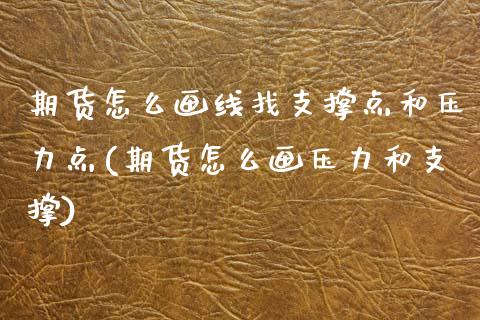 期货怎么画线找支撑点和压
力点(期货怎么画压力和支
撑)